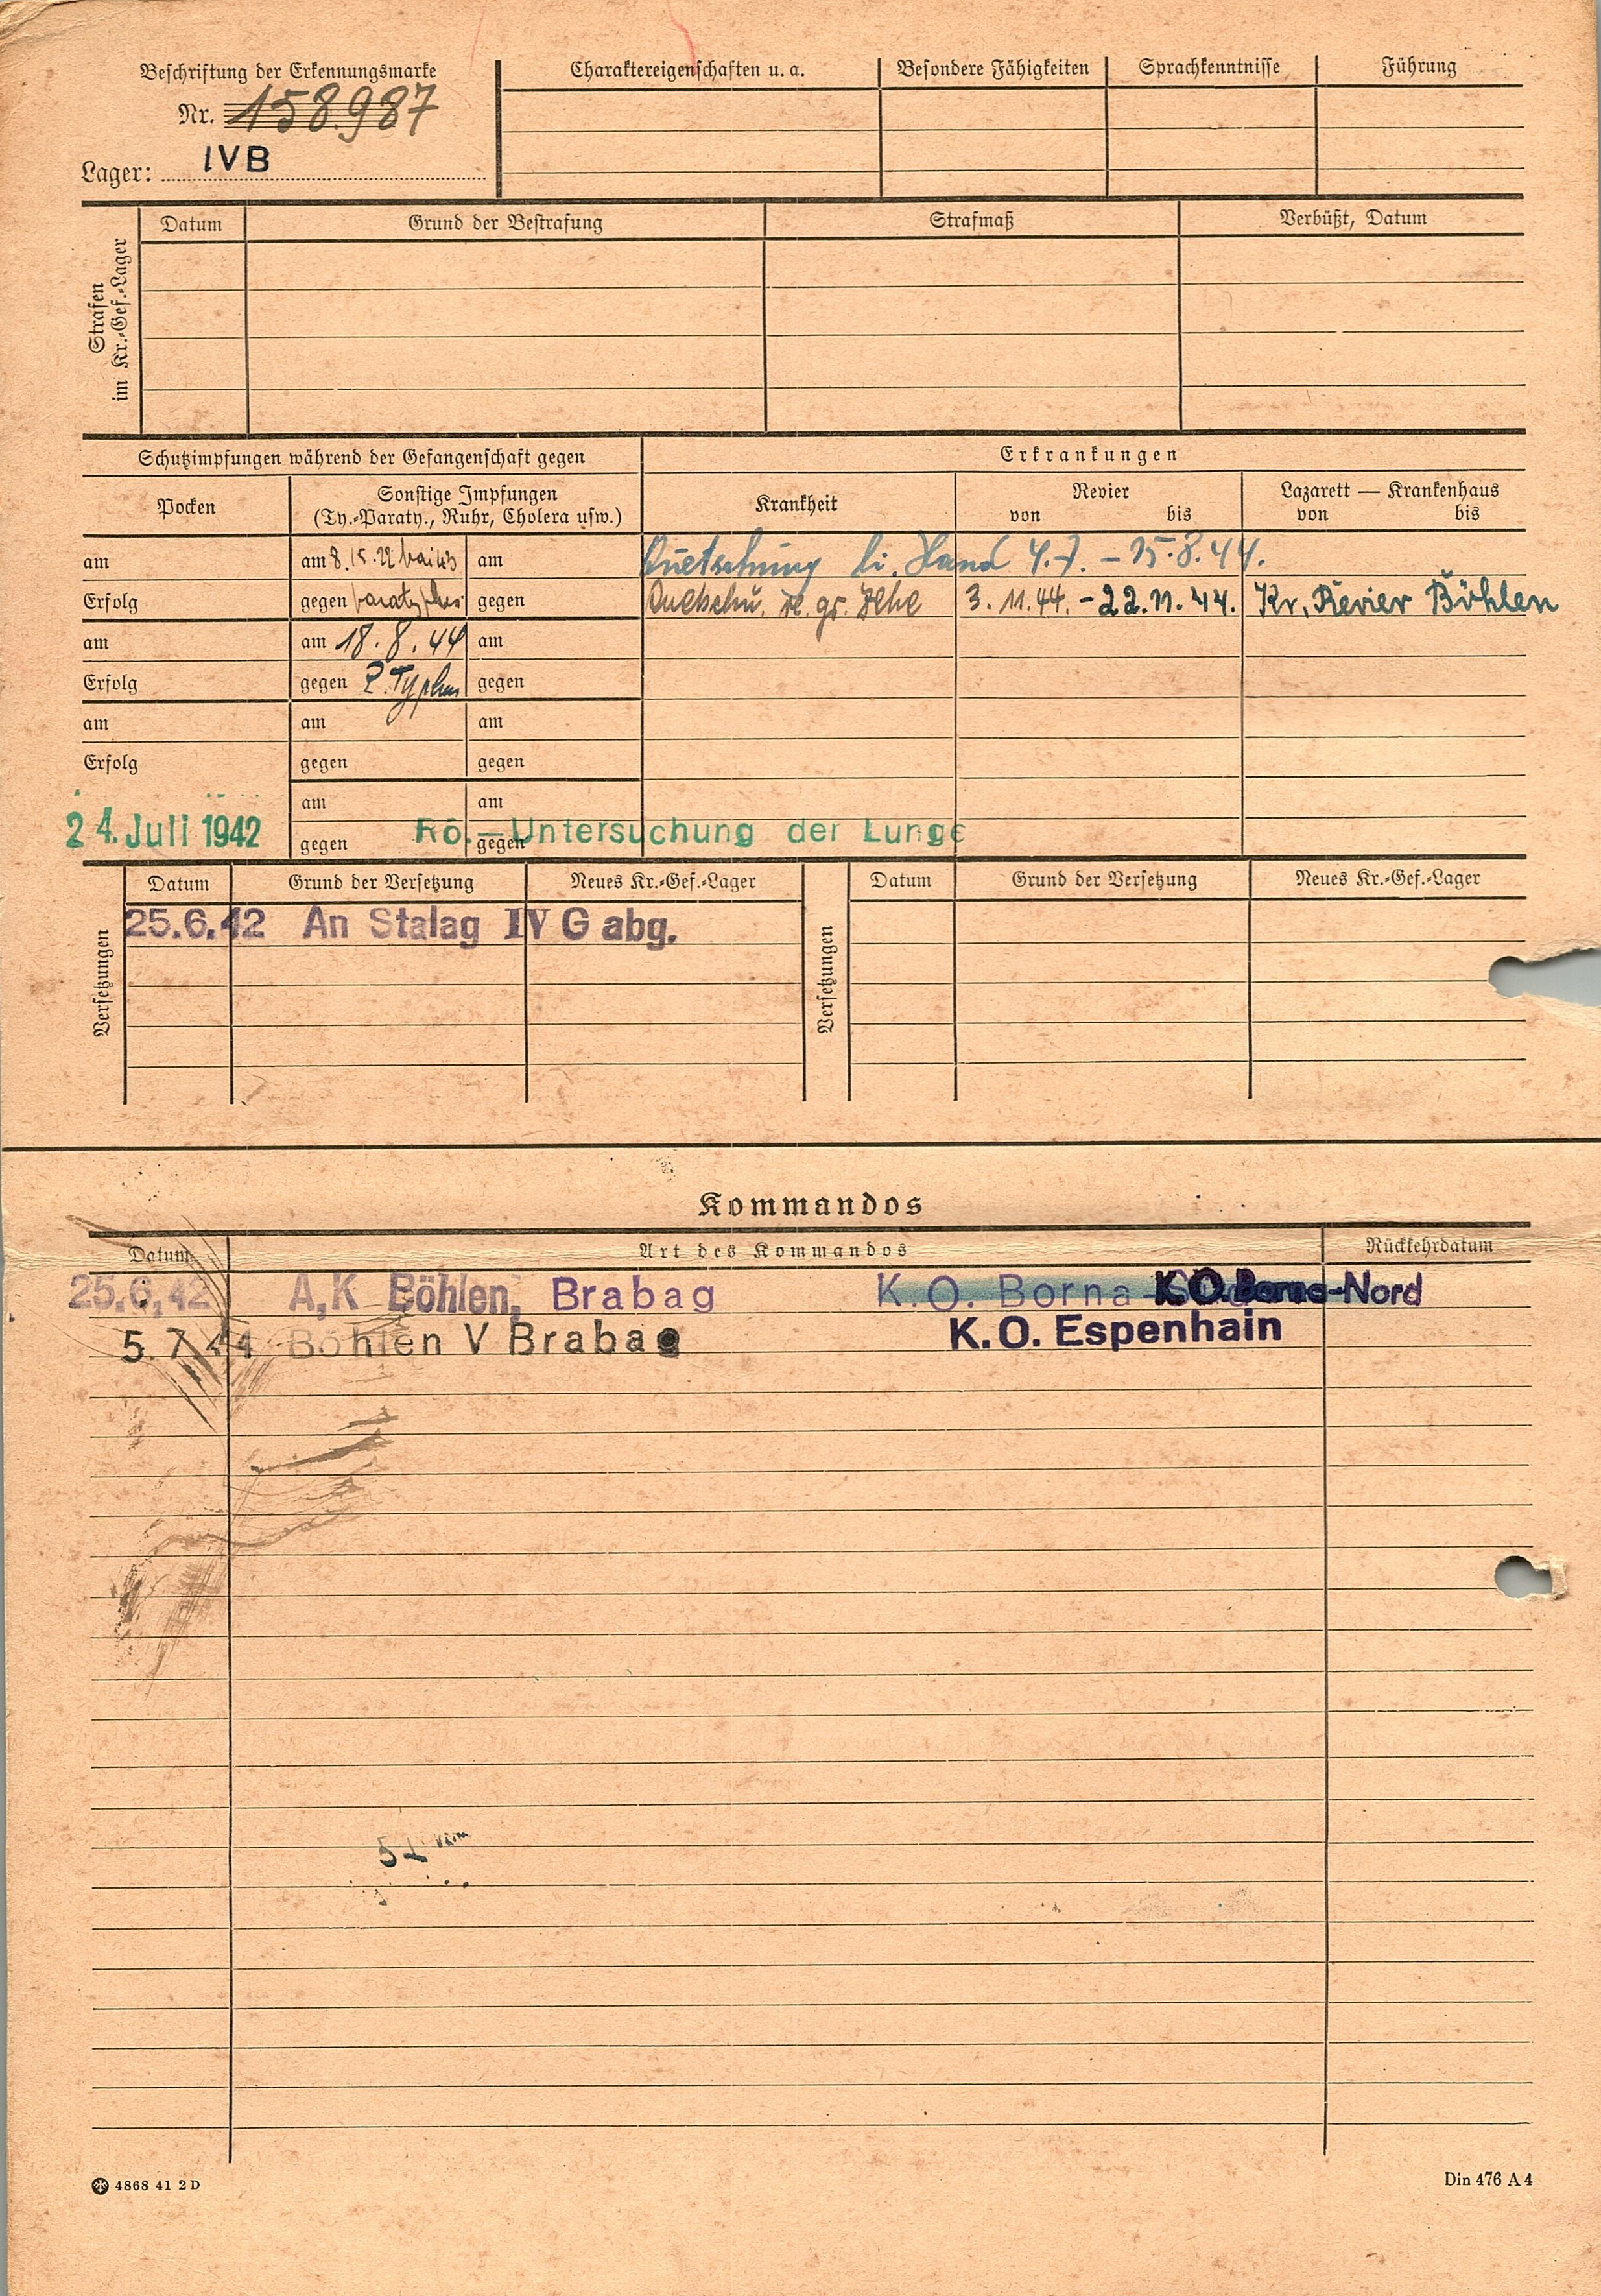 Beschriftung der Erkennungsmarke
Nr. 158987
Lager: IVB
Charaktereigenschaften u. a.
Besondere Fähigkeiten
Sprachkenntnisse
Führung
Strafen im Kr.-Gef.-Lager
Datum
Grund der Bestrafung
Strafmaß
Verbüßt, Datum
Schutzimpfungen während der Gefangenschaft gegen
Erkrankungen
Pocken
Sonstige Impfungen
(Ty.-Paraty., Ruhr, Cholera usw.)
Krankheit
Revier
von bis
Lazarett — Krankenhaus
von bis
am am 8. 15. 22 Mai 43 am Quetschung li. Hand 4.7. - 15.8.44.
Erfolg gegen Paratyphus gegen Quetschu. re. gr. Zehe 3.11.44. - 22.11.44. Kr. Revier Böhlen
am am 18.8.44 am
Erfolg gegen P. Typhus gegen
am am am
Erfolg gegen gegen
am am
24. Juli 1942 gegen gegen Rö.-Untersuchung der Lunge
Versetzungen
Datum
Grund der Versetzung
Neues Kr.-Gef.-Lager
Versetzungen
Datum
Grund der Versetzung
Neues Kr.-Gef.-Lager
25.6.42 An Stalag IV G abg.
Kommandos
Datum
Art des Kommandos
Rückkehrdatum
25.6.42 A,K Böhlen, Brabag K.O. Borna K.O. Borna-Nord
5.7.44 Böhlen V Brabag K.O. Espenhain
4868 41 2 D
Din 476 A 4